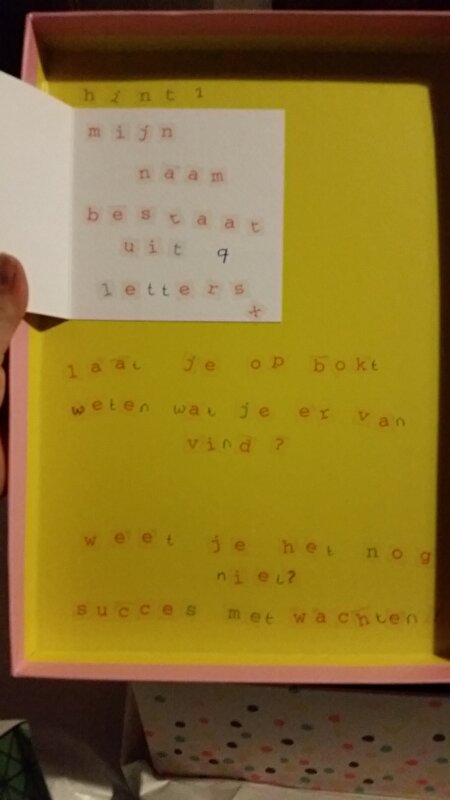 hint 1
mijn
naam
bestaat
uit 9
letters
x
laat je op bokt
weten wat je er van
vind ?
weet je het nog
niet?
succes met wachten